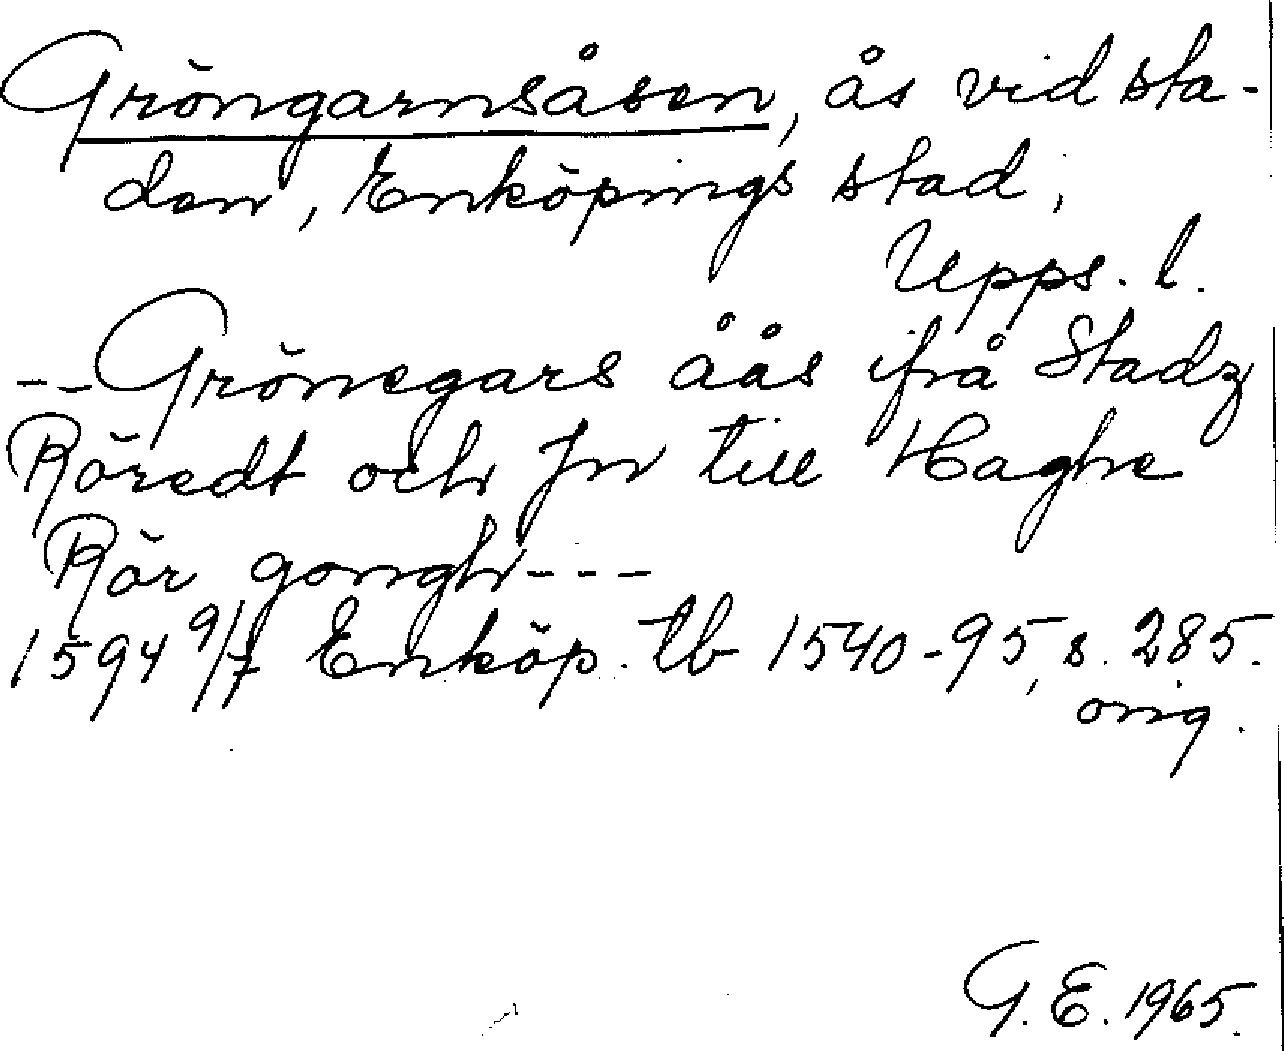 Gröngarnsåsen, ås vid sta-
den, Enköpings stad,
Upps. l.
-- Grönegars åås ifrå Stadz
Röredt och Jn till Haghe
Rör gongh ---
1594 9/7 Enköp. tb 1540-95, s. 285.
orig.
G. E. 1965.